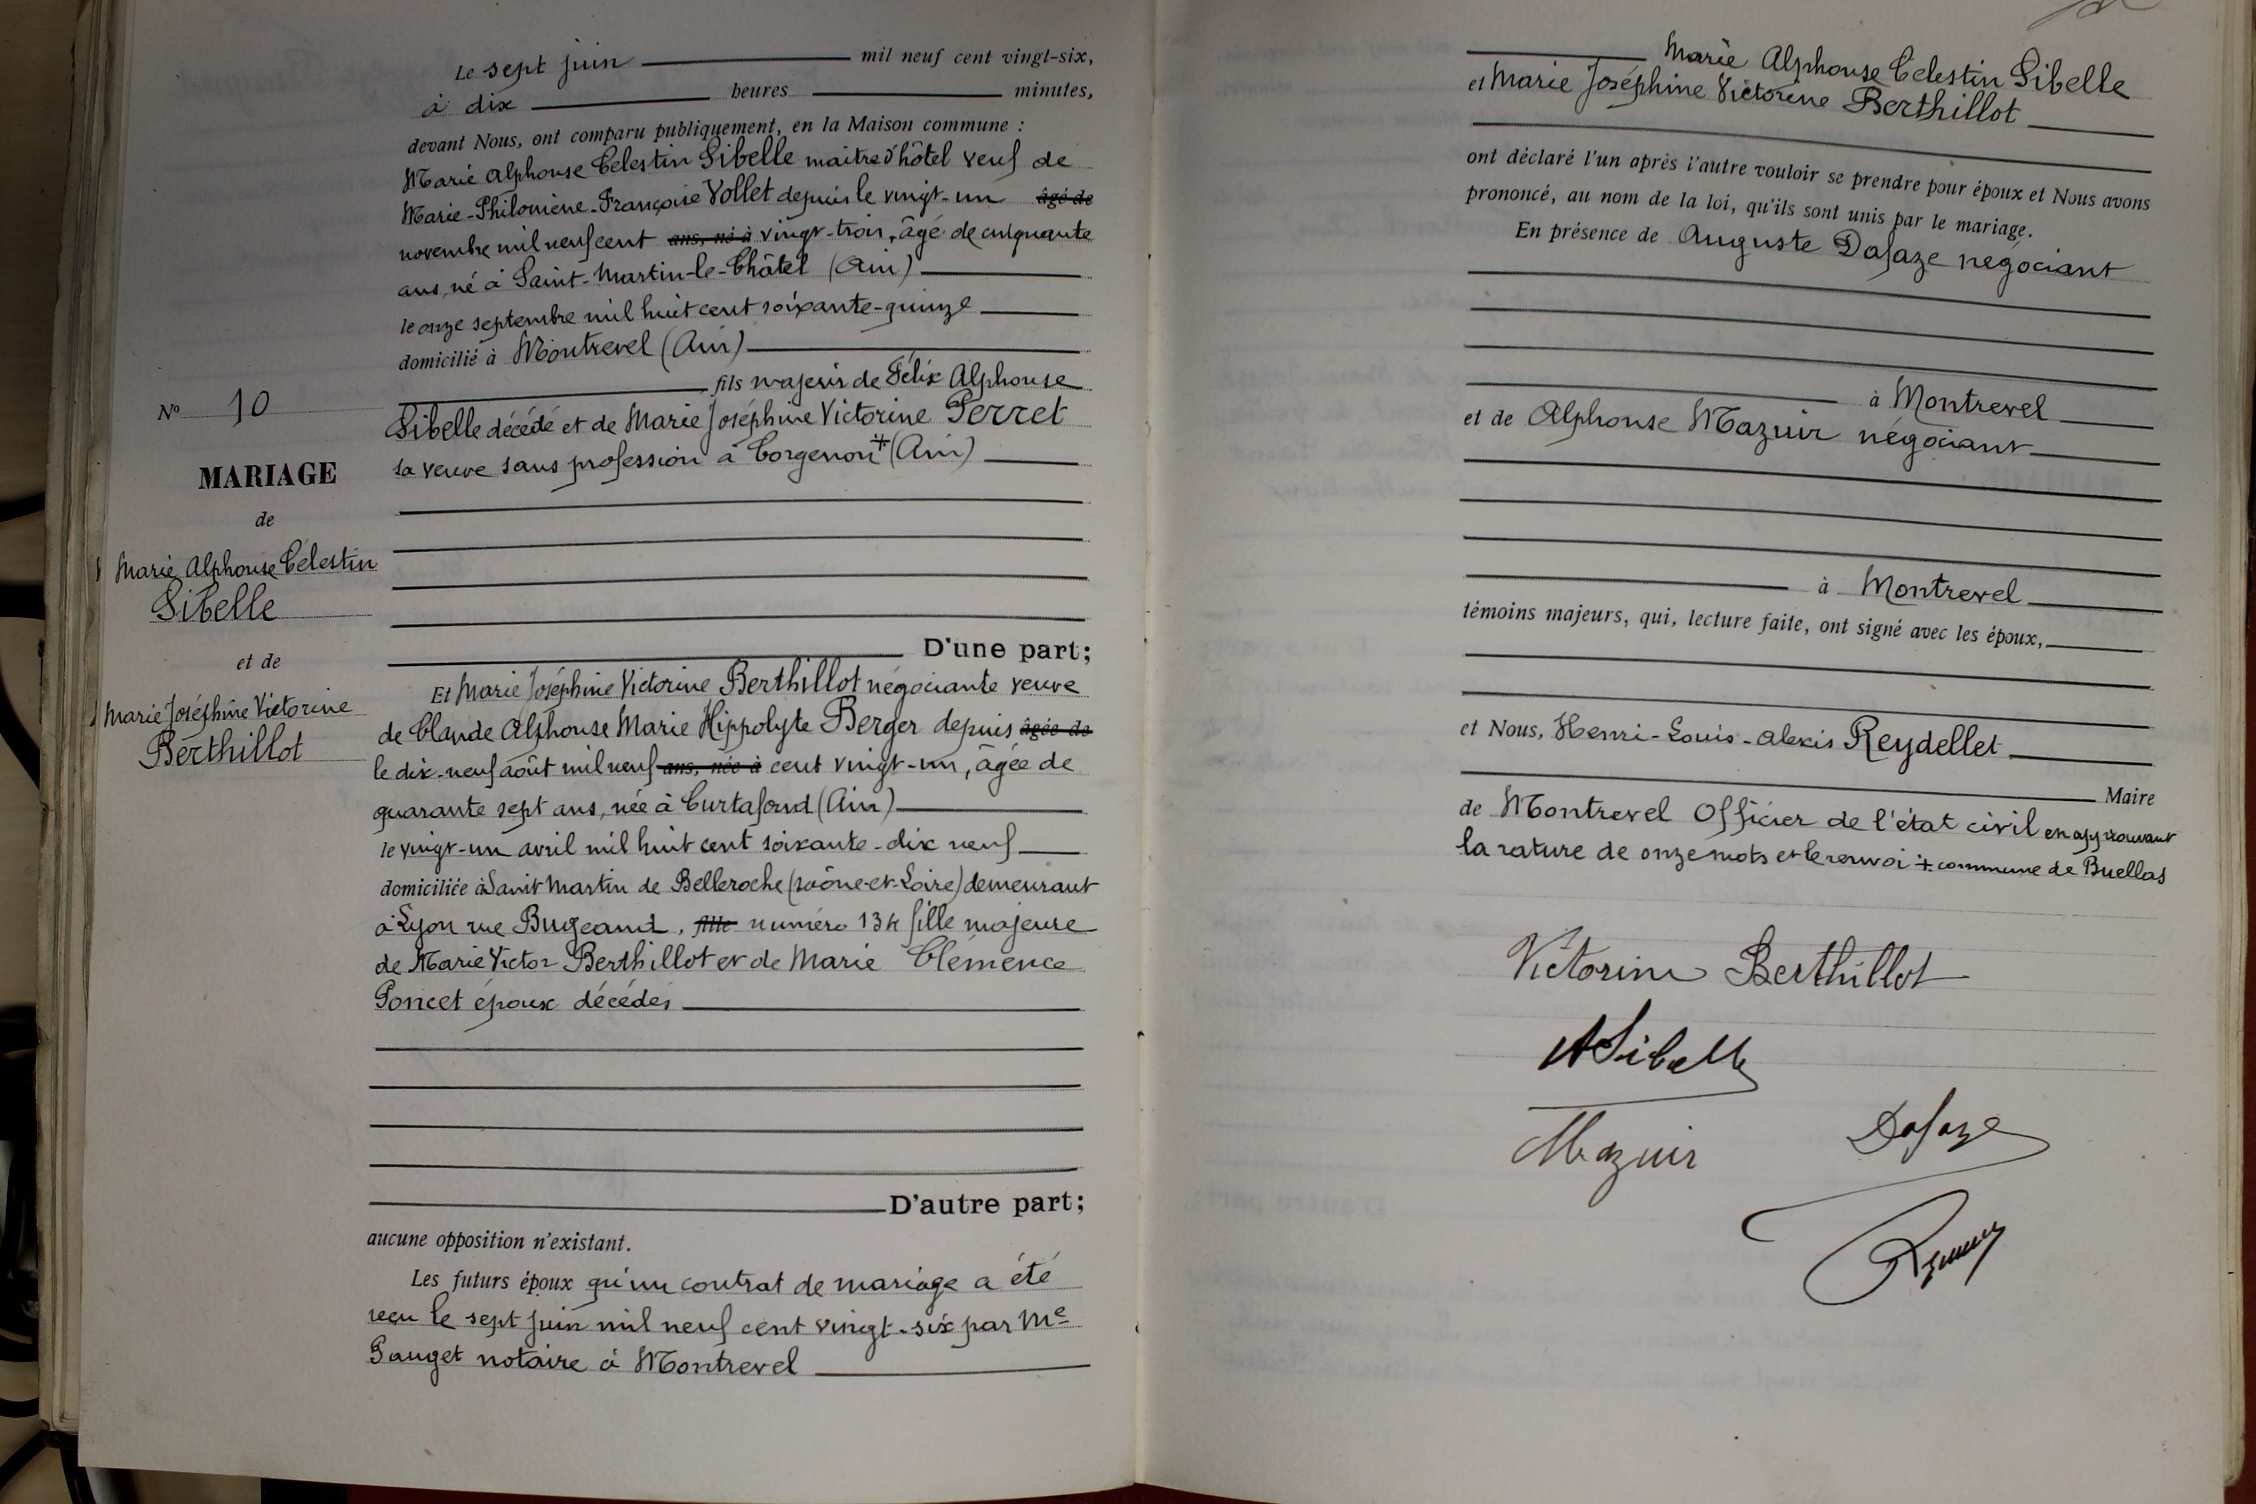 Le sept juin mil neuf cent vingt-six,
à dix heures minutes,
devant Nous, ont comparu publiquement, en la Maison commune :
Marie Alphonse Célestin Sibelle maitre d'hôtel veuf de
Marie-Philomène-Françoise Vollet depuis le vingt-un âgé de
novembre mil neuf cent ans, né à vingt-trois, âgé de cinquante
ans, né à Saint-Martin-le-Châtel (Ain)
le onze septembre mil huit cent soixante-quinze
domicilié à Montrevel (Ain)
fils majeur de Félix Alphonse
Sibelle décédé et de Marie Joséphine Victorine Perret
sa veuve sans profession à Corgenon + (Ain)
D'une part;
Nº 10
MARIAGE
de
Marie Alphonse Célestin
Sibelle
et de
Marie Joséphine Victorine
Berthillot
Et Marie Joséphine Victorine Berthillot négociante veuve
de Claude Alphonse Marie Hippolyte Berger depuis âgée de
le dix-neuf août mil neuf ans, née à cent vingt-un, âgée de
quarante sept ans, née à Curtafond (Ain)
le vingt-un avril mil huit cent soixante-dix neuf
domiciliée à Saint Martin de Belleroche (Saône-et-Loire) demeurant
à Lyon rue Bugeaud, fille numéro 134 fille majeure
de Marie Victor Berthillot et de Marie Clémence
Poncet époux décédés
D'autre part;
aucune opposition n'existant.
Les futurs époux qu'un contrat de mariage a été
reçu le sept juin mil neuf cent vingt-six par Me
Pauget notaire à Montrevel
Marie Alphonse Celestin Sibelle
et Marie Joséphine Victorine Berthillot
ont déclaré l'un après l'autre vouloir se prendre pour époux et Nous avons
prononcé, au nom de la loi, qu'ils sont unis par le mariage.
En présence de Auguste Dafaze négociant
à Montrevel
et de Alphonse Mazuir négociant
à Montrevel
témoins majeurs, qui, lecture faite, ont signé avec les époux,
et Nous, Henri-Louis-Alexis Reydellet
Maire
de Montrevel Officier de l'état civil en approuvant
la rature de onze mots et le renvoi + commune de Buellas
Victorine Berthillot
A Sibelle
Mazuir
Dafaze